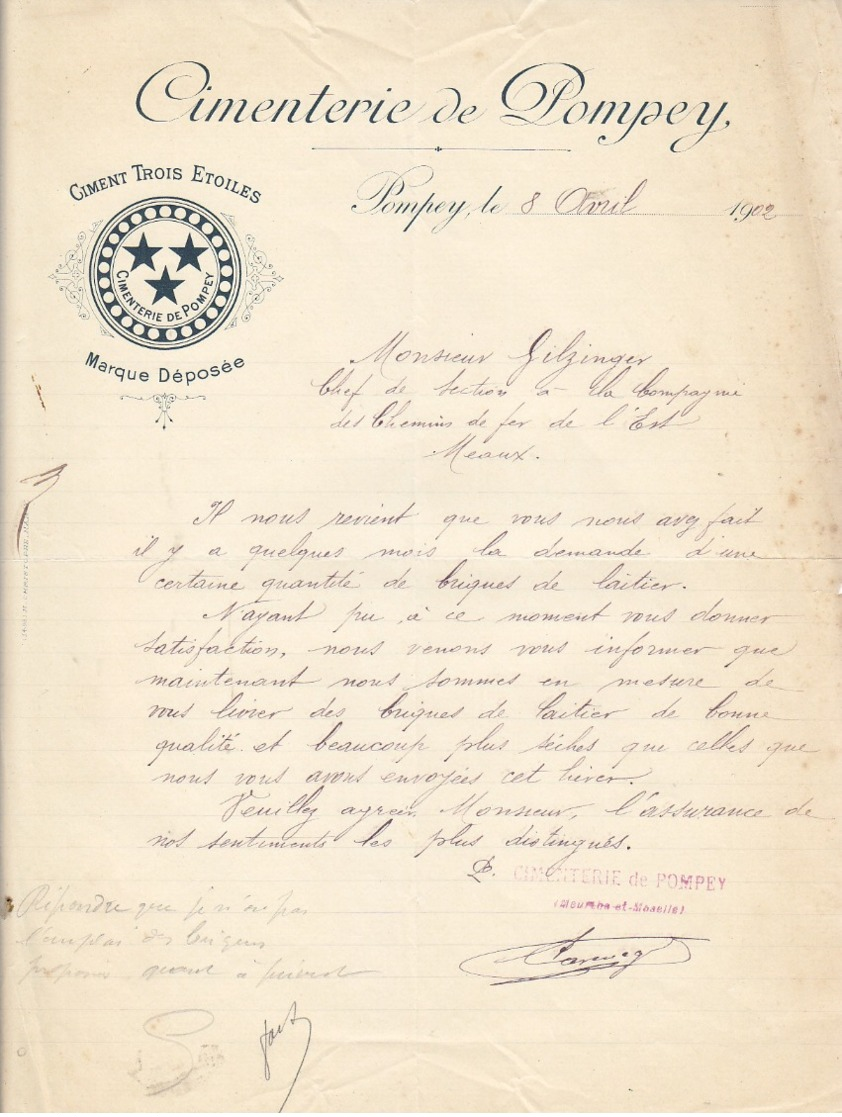 Cimenterie de Pompey,
CIMENT TROIS ETOILES
CIMENTERIE DE POMPEY
Marque Déposée
Pompey, le 8 Avril 1902
Monsieur Gilzinger
Chef de section à la Compagnie
des Chemins de fer de l'Est
Meaux.
Il nous revient que vous nous avez fait
il y a quelques mois la demande d'une
certaine quantité de briques de laitier.
N'ayant pu, à ce moment vous donner
satisfaction, nous venons vous informer que
maintenant nous sommes en mesure de
vous livrer des briques de laitier de bonne
qualité et beaucoup plus sèches que celles que
nous vous avons envoyées cet hiver.
Veuillez agréer, Monsieur, l'assurance de
nos sentiments les plus distingués.
P. CIMENTERIE de POMPEY
(Meurthe-et-Moselle)
Répondre que je n'ai pas
l'emploi de briques
quant à présent
fait